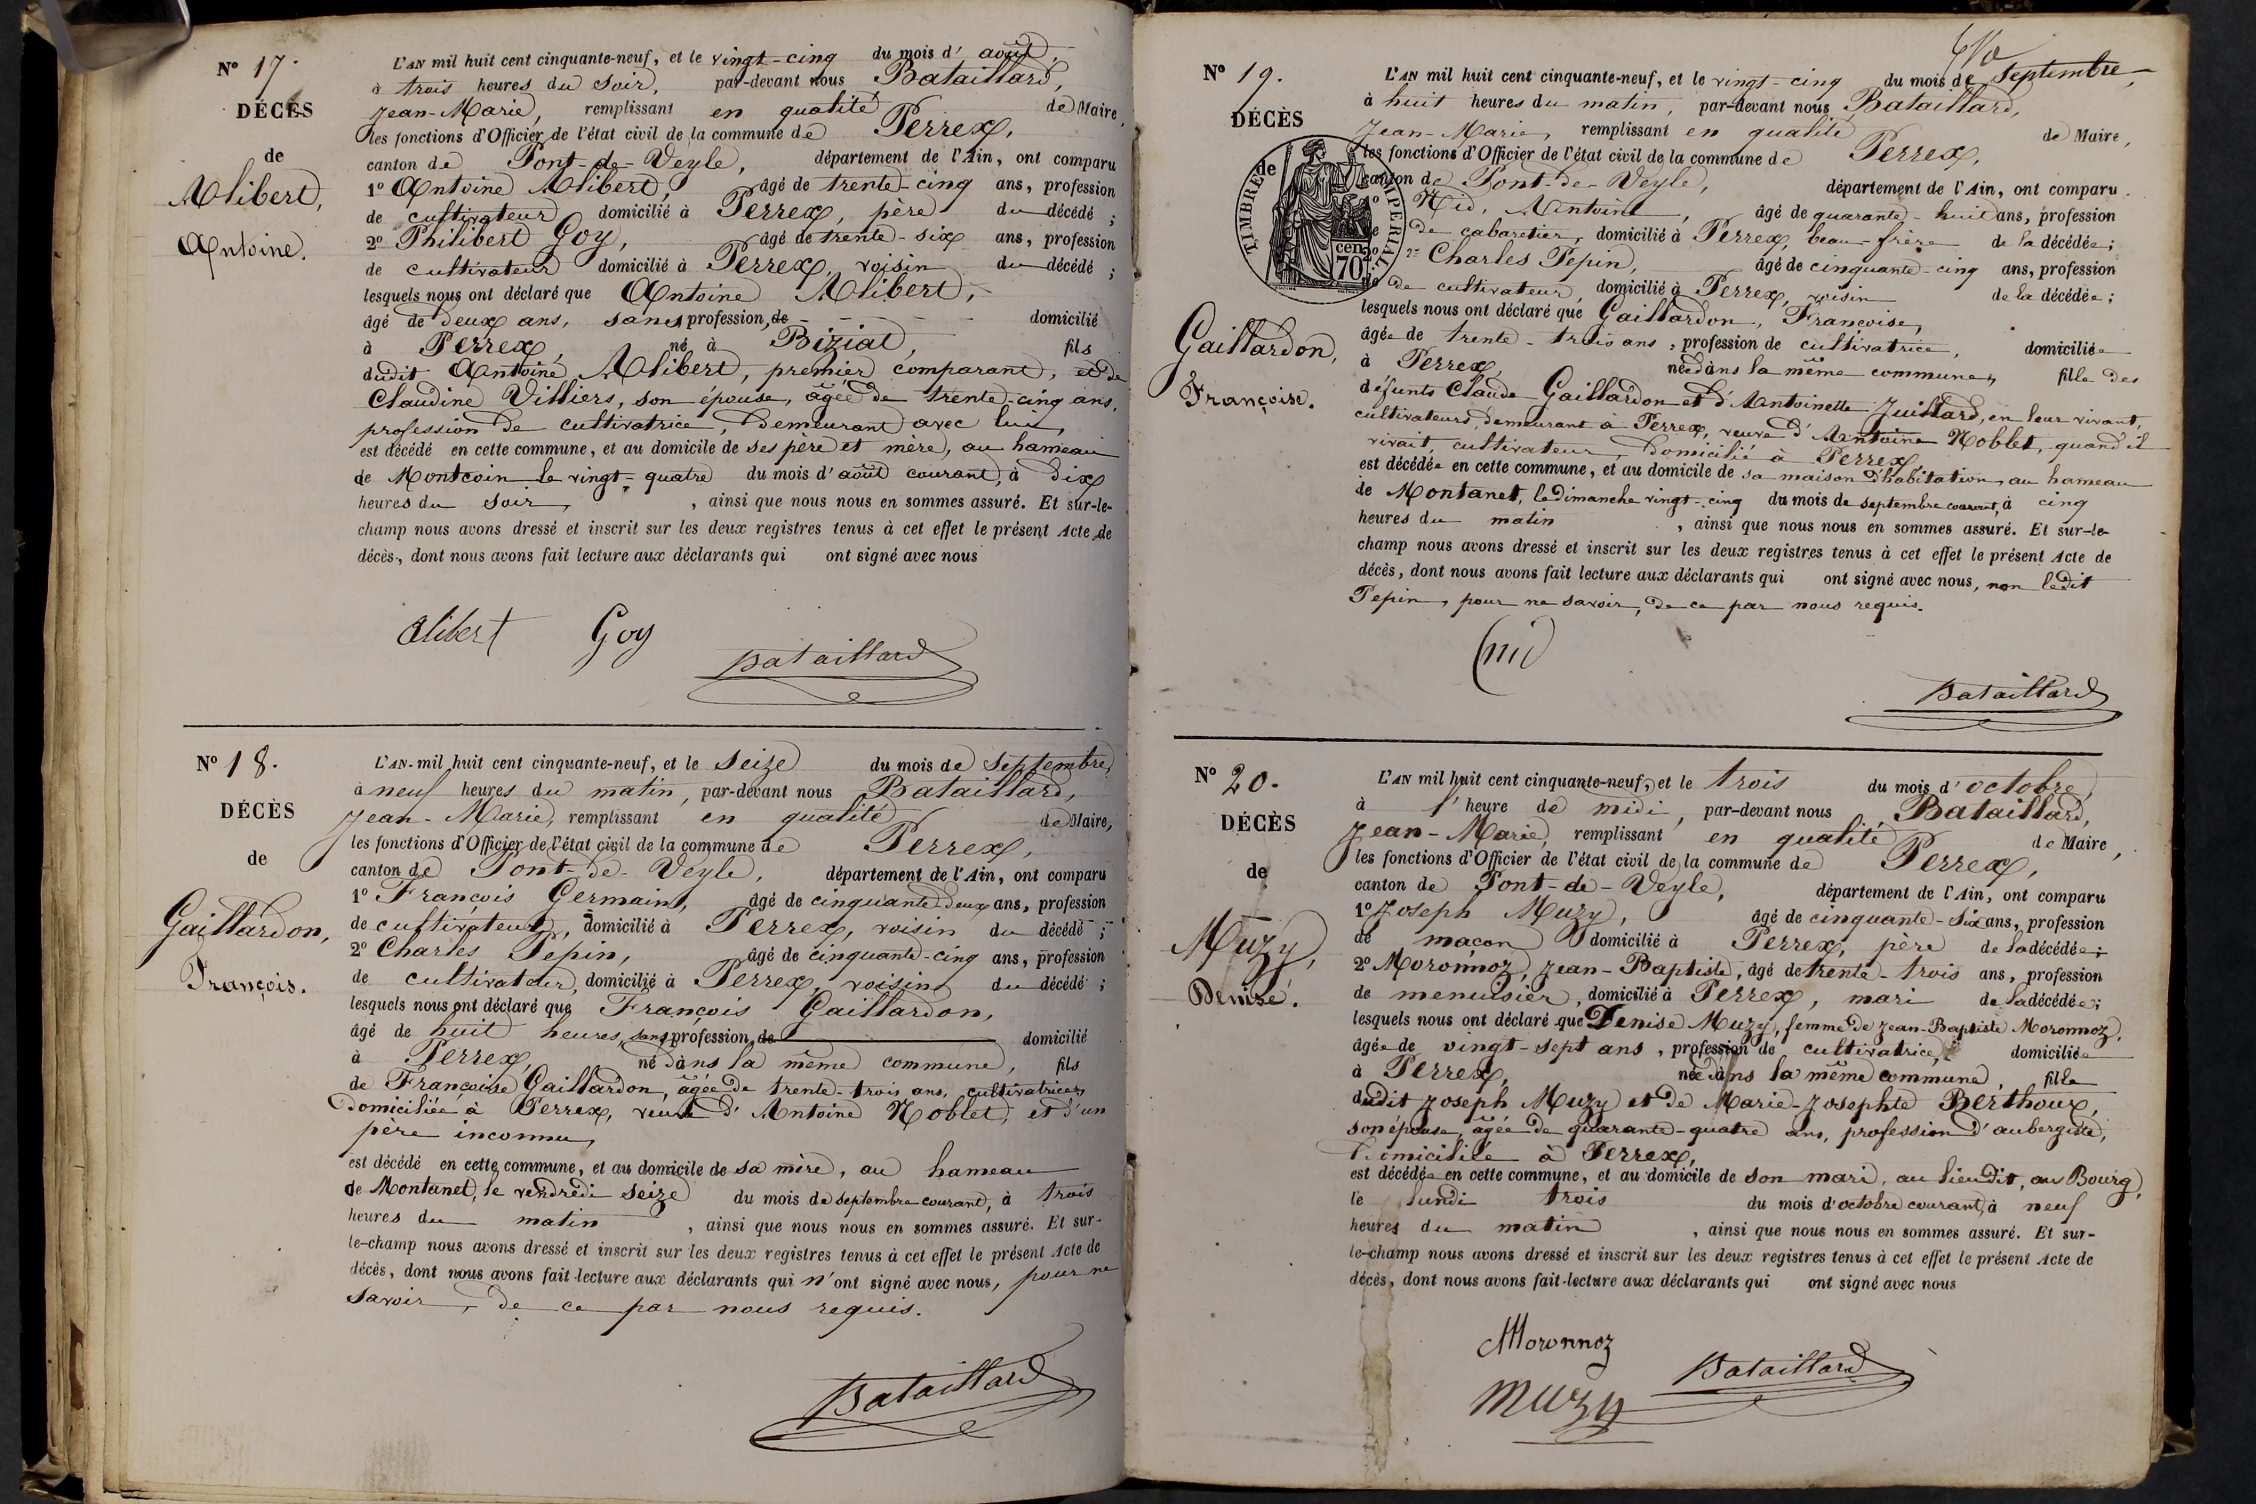 N° 17.
DÉCÈS
de
Alibert,
Antoine.
L'AN mil huit cent cinquante-neuf, et le vingt-cinq du mois d'août,
à trois heures du soir, par-devant nous Bataillard,
Jean-Marie, remplissant en qualité de Maire,
les fonctions d'Officier de l'état civil de la commune de Perrex,
canton de Pont-de-Veyle, département de l'Ain, ont comparu
1° Antoine Alibert, âgé de trente-cinq ans, profession
de cultivateur domicilié à Perrex, père du décédé ;
2° Philibert Goy, âgé de trente-six ans, profession
de cultivateur domicilié à Perrex, voisin du décédé ;
lesquels nous ont déclaré que Antoine Alibert,
âgé de deux ans, sans profession, de domicilié
à Perrex, né à Biziat, fils
dudit Antoine Alibert, premier comparant, et de
Claudine Villiers, son épouse, âgée de trente-cinq ans,
profession de cultivatrice, demeurant avec lui,
est décédé en cette commune, et au domicile de ses père et mère, au hameau
de Montcoin le vingt-quatre du mois d'août courant, à dix
heures du soir, , ainsi que nous nous en sommes assuré. Et sur-le-
champ nous avons dressé et inscrit sur les deux registres tenus à cet effet le présent Acte de
décès, dont nous avons fait lecture aux déclarants qui ont signé avec nous
alibert Goy
Bataillard
N° 18.
DÉCÈS
de
Gaillardon,
François.
L'AN mil huit cent cinquante-neuf, et le seize du mois de septembre,
à neuf heures du matin, par-devant nous Bataillard,
Jean-Marie, remplissant en qualité de Maire,
les fonctions d'Officier de l'état civil de la commune de Perrex,
canton de Pont-de-Veyle, département de l'Ain, ont comparu
1° François Germain, âgé de cinquante deux ans, profession
de cultivateur, domicilié à Perrex, voisin du décédé ;
2° Charles Pepin, âgé de cinquante-cinq ans, profession
de cultivateur, domicilié à Perrex, voisin du décédé ;
lesquels nous ont déclaré que François Gaillardon,
âgé de huit heures, sans profession, de domicilié
à Perrex, né dans la même commune, fils
de Françoise Gaillardon, âgée de trente-trois ans, cultivatrice,
domiciliée à Perrex, veuve d'Antoine Noblet, et d'un
père inconnu,
est décédé en cette commune, et au domicile de sa mère, au hameau
de Montanet, le vendredi seize du mois de septembre courant, à trois
heures du matin , ainsi que nous nous en sommes assuré. Et sur-
le-champ nous avons dressé et inscrit sur les deux registres tenus à cet effet le présent Acte de
décès, dont nous avons fait lecture aux déclarants qui n'ont signé avec nous, pour ne
savoir, de ce par nous requis.
Bataillard
N° 19.
DÉCÈS
de
TIMBRE IMPÉRIAL
70 cen
Gaillardon,
Françoise.
L'AN mil huit cent cinquante-neuf, et le vingt-cinq du mois de septembre,
à huit heures du matin, par-devant nous Bataillard,
Jean-Marie, remplissant en qualité de Maire,
les fonctions d'Officier de l'état civil de la commune de Perrex,
canton de Pont-de-Veyle, département de l'Ain, ont comparu
1° Nid, Antoine, âgé de quarante-huit ans, profession
de cabaretier, domicilié à Perrex, beau-frère de la décédée ;
2° Charles Pepin, âgé de cinquante-cinq ans, profession
de cultivateur, domicilié à Perrex, voisin de la décédée ;
lesquels nous ont déclaré que Gaillardon, Françoise,
âgée de trente-trois ans, profession de cultivatrice, domiciliée
à Perrex, née dans la même commune, fille des
défunts Claude Gaillardon et d'Antoinette Juillard, en leur vivant,
cultivateurs, demeurant à Perrex, veuve d'Antoine Noblet, quand il
vivait, cultivateur, domicilié à Perrex,
est décédée en cette commune, et au domicile de sa maison d'habitation, au hameau
de Montanet, le dimanche vingt-cinq du mois de septembre courant, à cinq
heures du matin , ainsi que nous nous en sommes assuré. Et sur-le-
champ nous avons dressé et inscrit sur les deux registres tenus à cet effet le présent Acte de
décès, dont nous avons fait lecture aux déclarants qui ont signé avec nous, non ledit
Pepin, pour ne savoir, de ce par nous requis.
nid
Bataillard
N° 20.
DÉCÈS
de
Muzy,
Denise.
L'AN mil huit cent cinquante-neuf, et le trois du mois d'octobre,
à l'heure de midi, par-devant nous, Bataillard,
Jean-Marie, remplissant en qualité de Maire,
les fonctions d'Officier de l'état civil de la commune de Perrex,
canton de Pont-de-Veyle, département de l'Ain, ont comparu
1° Joseph Muzy, âgé de cinquante-six ans, profession
de maçon domicilié à Perrex, père de la décédée ;
2° Moronnoz, Jean-Baptiste, âgé de trente-trois ans, profession
de menuisier, domicilié à Perrex, mari de la décédée ;
lesquels nous ont déclaré que Denise Muzy, femme de Jean-Baptiste Moronnoz,
âgée de vingt-sept ans, profession de cultivatrice, domiciliée
à Perrex, née dans la même commune, fille
dudit Joseph Muzy et de Marie-Josephte Berthoux,
son épouse, âgée de quarante-quatre ans, profession d'aubergiste,
domiciliée à Perrex,
est décédée en cette commune, et au domicile de son mari, au lieu dit, au Bourg,
le lundi trois du mois d'octobre courant, à neuf
heures du matin , ainsi que nous nous en sommes assuré. Et sur-
le-champ nous avons dressé et inscrit sur les deux registres tenus à cet effet le présent Acte de
décès, dont nous avons fait lecture aux déclarants qui ont signé avec nous
Moronnoz
Bataillard
Muzy